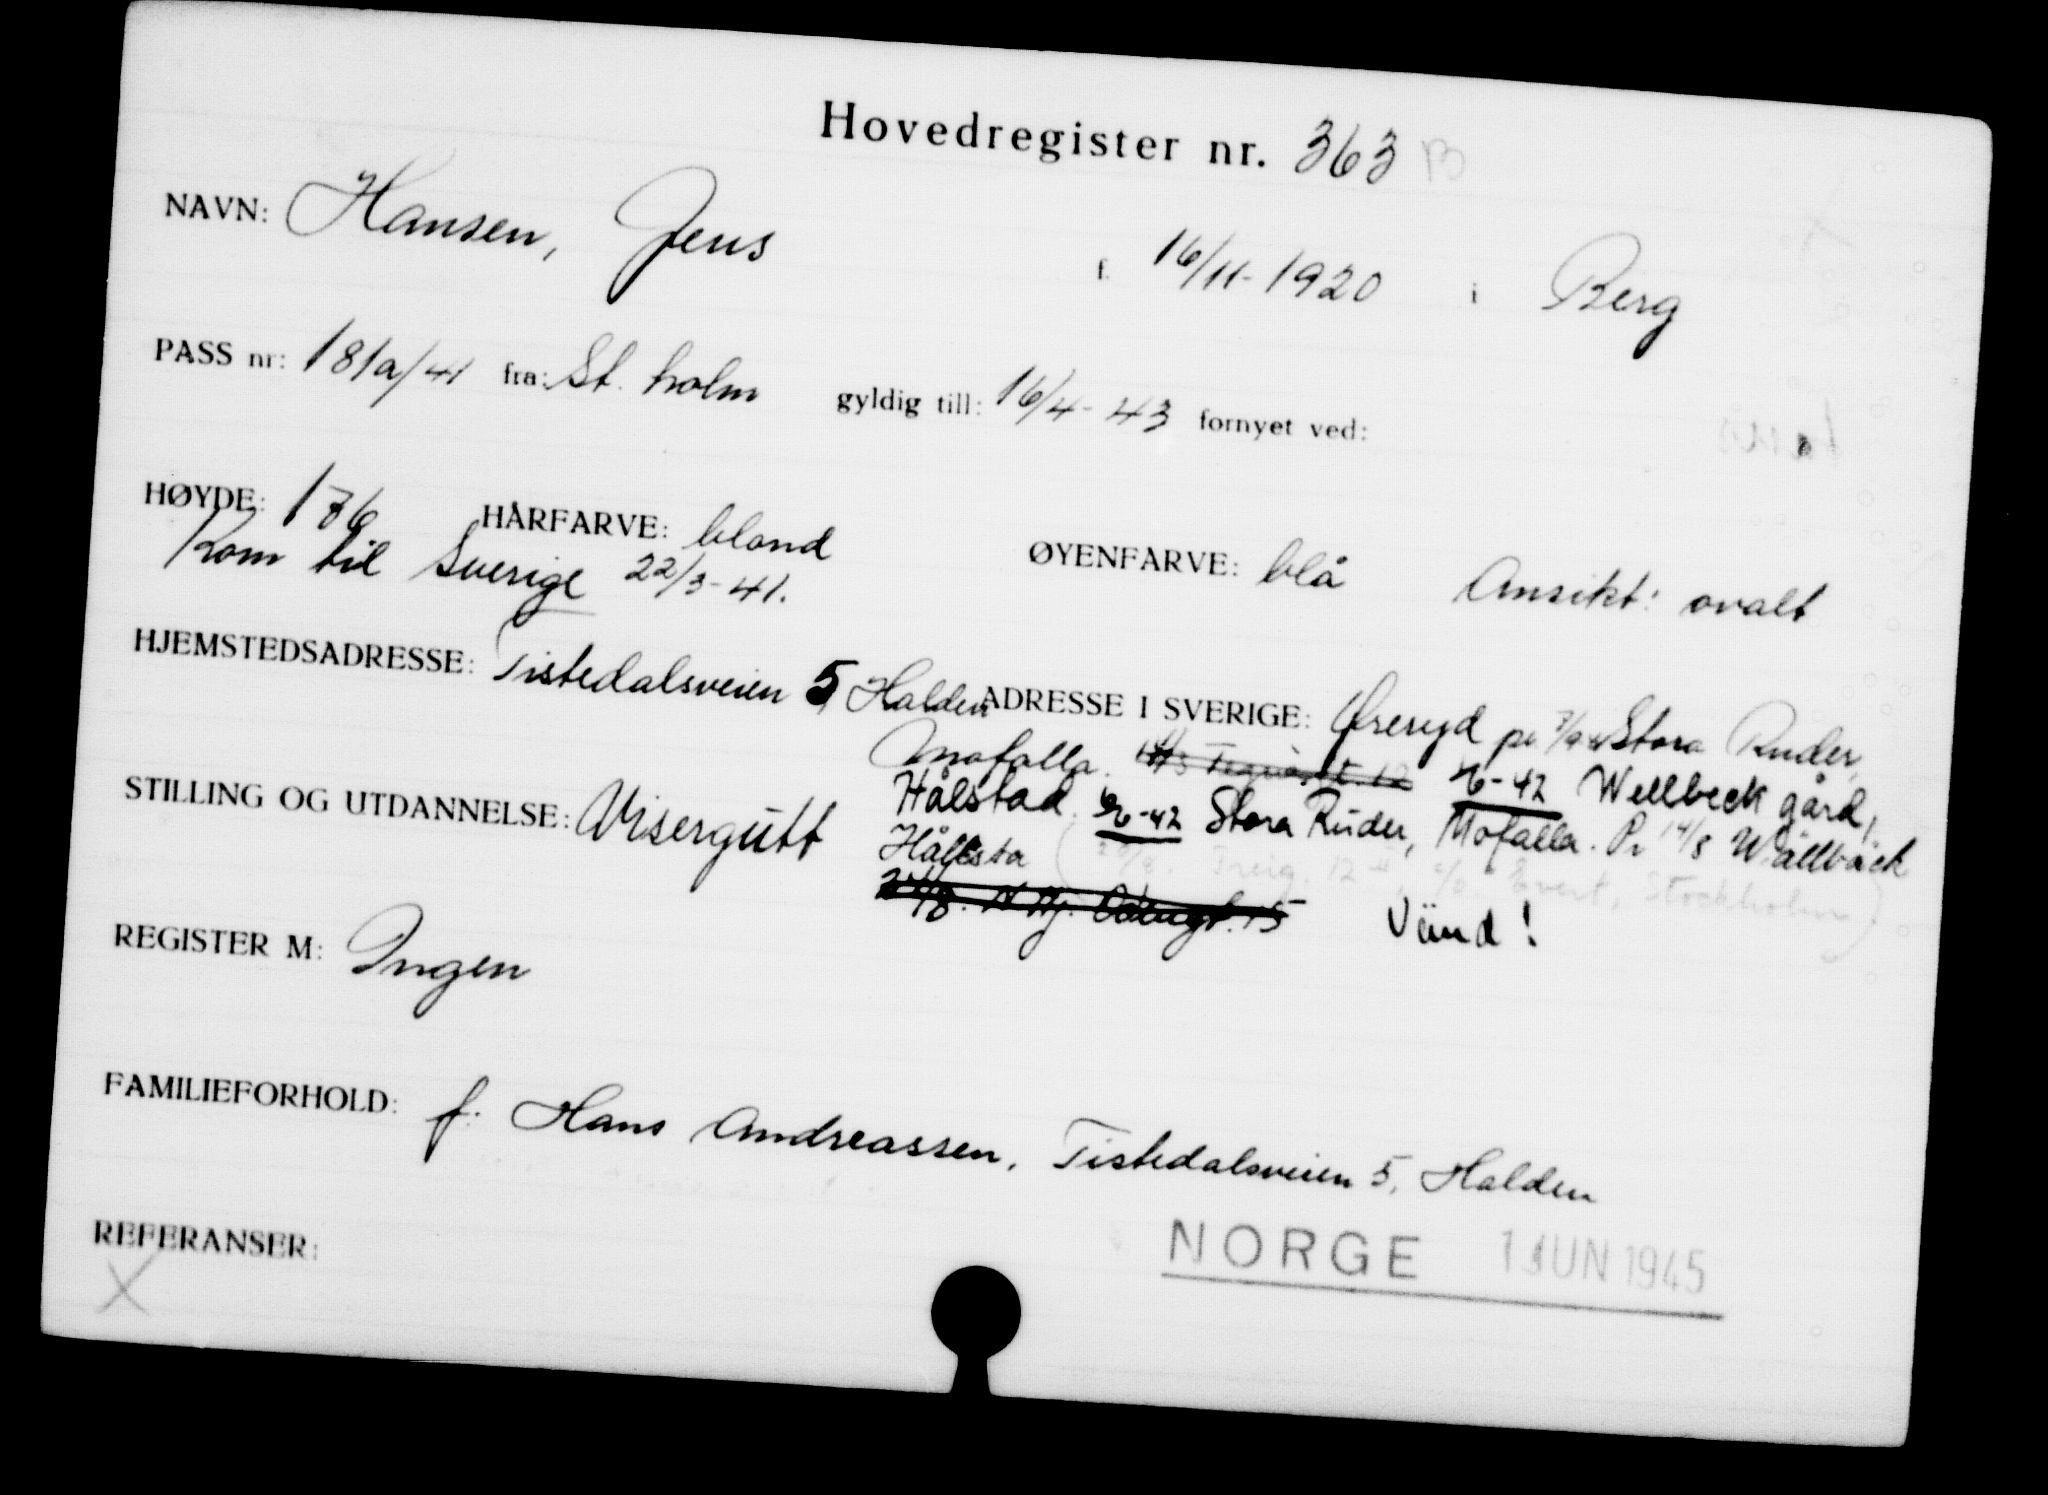 Hovedregister nr. 363 B
NAVN: Hansen, Jens f. 16/11-1920 i Berg
PASS nr: 181a/41 fra: St. holm gyldig till: 16/4-43 fornyet ved:
HØYDE: 176 HÅRFARVE: blond ØYENFARVE: blå Ansikt: ovalt
Kom til Sverige 22/3-41.
HJEMSTEDSADRESSE: Tistedalsveien 5, Halden ADRESSE I SVERIGE: Øreryd pr 7/9 Stora Ruder,
Mofalla. 6-42 Wellbeck gård,
STILLING OG UTDANNELSE: Visergutt Hålstad. 6-42 Stora Ruder, Mofalla. Pr 14/8 Wällbäck
Hållsta 12 c/o Evert, Stockholm)
15 Vänd!
REGISTER M: Ingen
FAMILIEFORHOLD: f: Hans Andreassen, Tistedalsveien 5, Halden
REFERANSER:
X
NORGE 1 JUN 1945